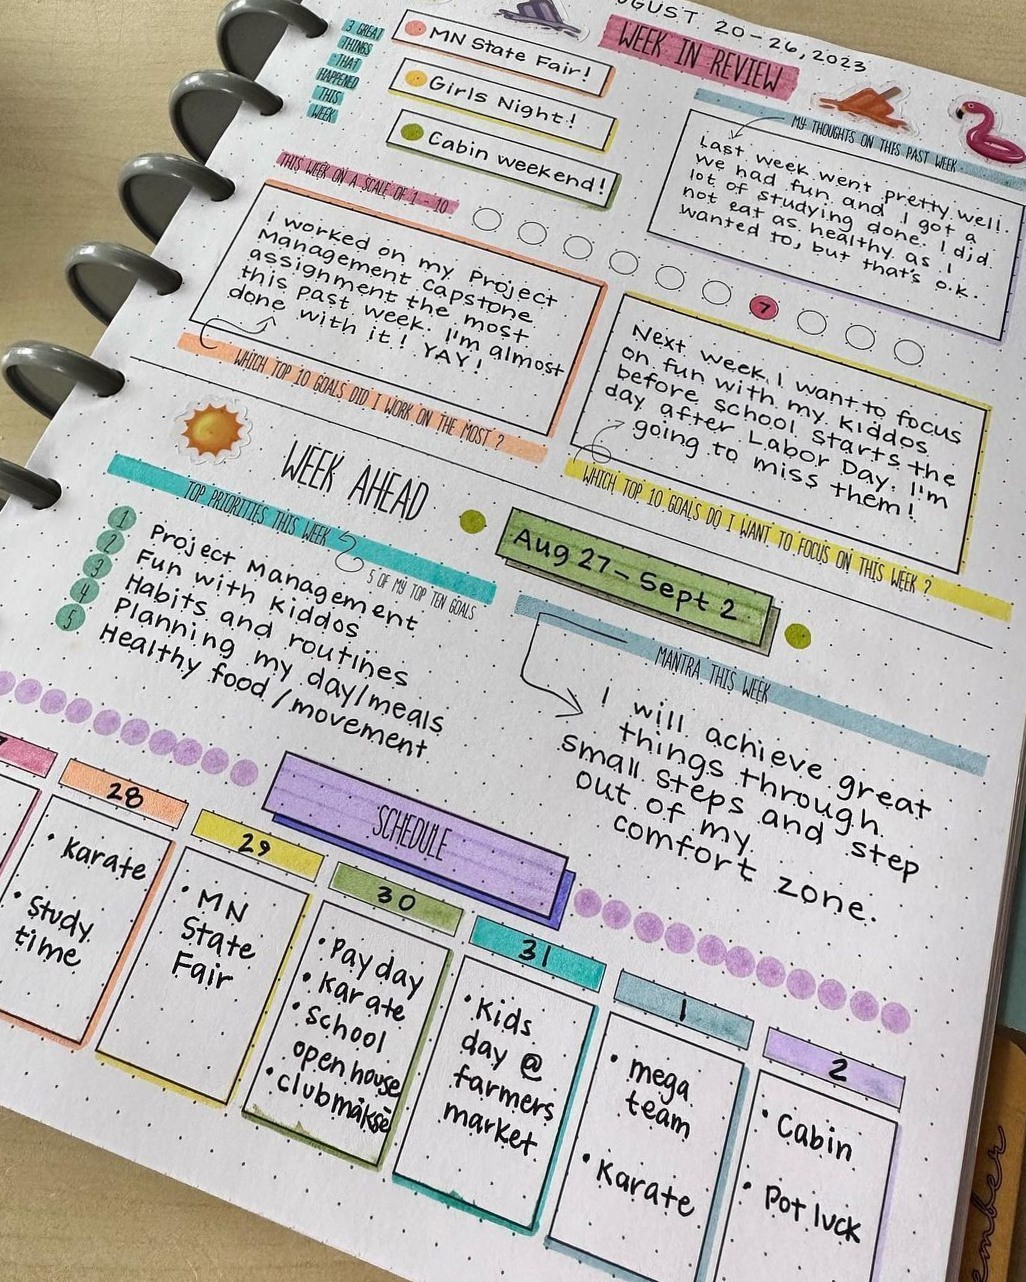 AUGUST 20-26, 2023
WEEK IN REVIEW
3 GREAT
THINGS
THAT
HAPPENED
THIS
WEEK
MN State Fair!
Girls Night!
Cabin weekend!
MY THOUGHTS ON THIS PAST WEEK
Last week went pretty well.
We had fun and I got a
lot of studying done. I did
not eat as healthy as I
wanted to, but that's o.k.
THIS WEEK ON A SCALE OF 1 - 10
7
I worked on my Project
Management Capstone
assignment the most
this past week. I'm almost
done with it! YAY!
WHICH TOP 10 GOALS DID I WORK ON THE MOST?
Next week, I want to focus
on fun with my kiddos
before school starts the
day after Labor Day. I'm
going to miss them!
WHICH TOP 10 GOALS DO I WANT TO FOCUS ON THIS WEEK?
WEEK AHEAD
Aug 27 - Sept 2
TOP PRIORITIES THIS WEEK
5 OF MY TOP TEN GOALS
1 Project Management
2 Fun with kiddos
3 Habits and routines
4 Planning my day/meals
5 Healthy food/movement
MANTRA THIS WEEK
I will achieve great
things through
small steps and step
out of my
comfort zone.
SCHEDULE
28
• Karate
• Study
time
29
• MN
State
Fair
30
• Pay day
• Karate
• School
open house
31
• Kids
day @
farmers
market
1
• mega
team
• Karate
2
• Cabin
• Pot luck